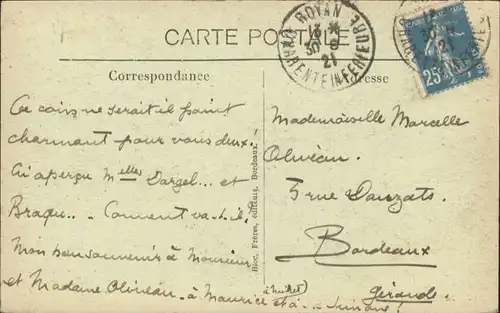 CARTE POSTALE
ROYAN
13 *
30 - 8
21
CHARENTE INFERIEURE
25
Correspondance
Adresse
Ce coin ne serait il point
charmant pour vous deux!
Ai aperçu Melles Dargel... et
Braque.. - Comment va-t-il.
Mon bon souvenir à Monsieur
et Madame Olivéau - à Maurice et à .. Simone!
Bloc, Frères, éditeurs, Bordeaux.
Mademoiselle Marcelle
Olivéau.
5 rue Dauzats.
Bordeaux
Gironde.